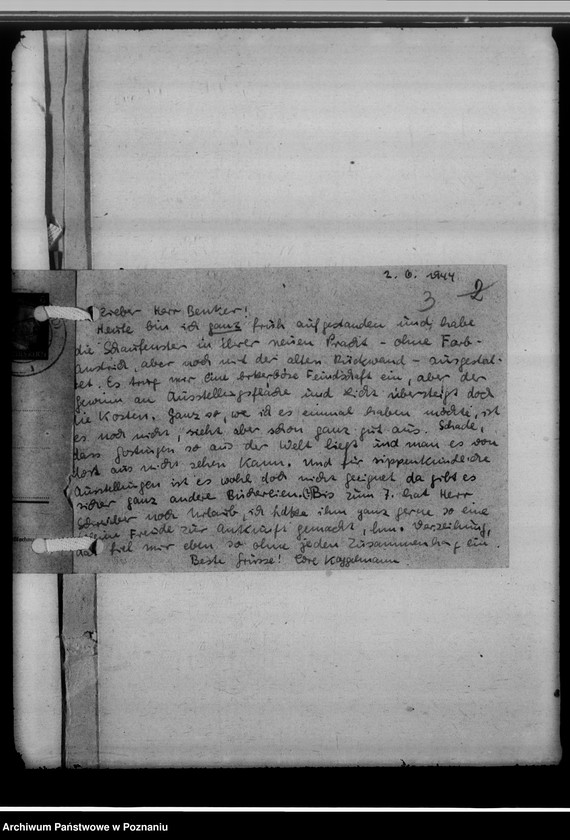 2. 6. 1944
3 2
Lieber Herr Benker!
Heute bin ich ganz früh aufgestanden und habe
die Schaufenster in ihrer neuen Pracht - ohne Farb-
anstrich, aber noch mit der alten Rückwand - ausgestal-
tet. Es trug mir eine bitterböse Feindschaft ein, aber der
Gewinn an Ausstellungsfläche und Licht übersteigt doch
die Kosten. Ganz so, wie ich es einmal haben möchte, ist
es noch nicht, sieht aber schon ganz gut aus. Schade,
dass Gostingen so aus der Welt liegt und man es von
dort aus nicht sehen kann. Und für sippenkundliche
Ausstellungen ist es wohl doch nicht geeignet, da gibt es
sicher ganz andere Büchereien. Bis zum 7. hat Herr
Schreiber noch Urlaub, ich hätte ihm ganz gerne so eine
kleine Freude zur Ankunft gemacht, hm. Verzeihung,
das fiel mir eben so ohne jeden Zusammenhang ein.
Beste Grüsse! Lore
Archiwum Państwowe w Poznaniu